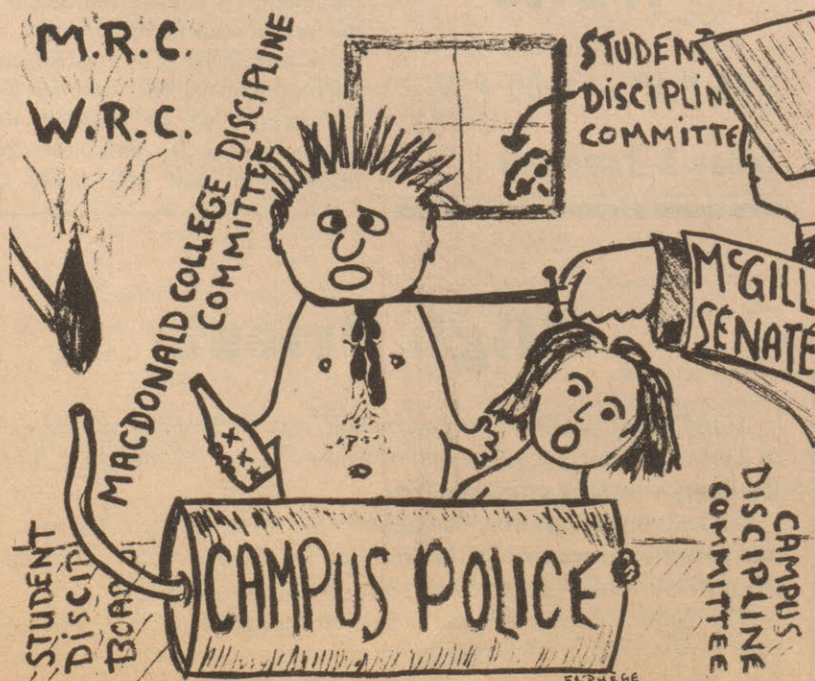 M.R.C.
W.R.C.
MACDONALD COLLEGE DISCIPLINE
COMMITTEE
STUDENT
DISCIPLIN
COMMITTE
MCGILL
SENATE
STUDENT
DISCIPL
BOARD
CAMPUS POLICE
CAMPUS
DISCIPLINE
COMMITTEE